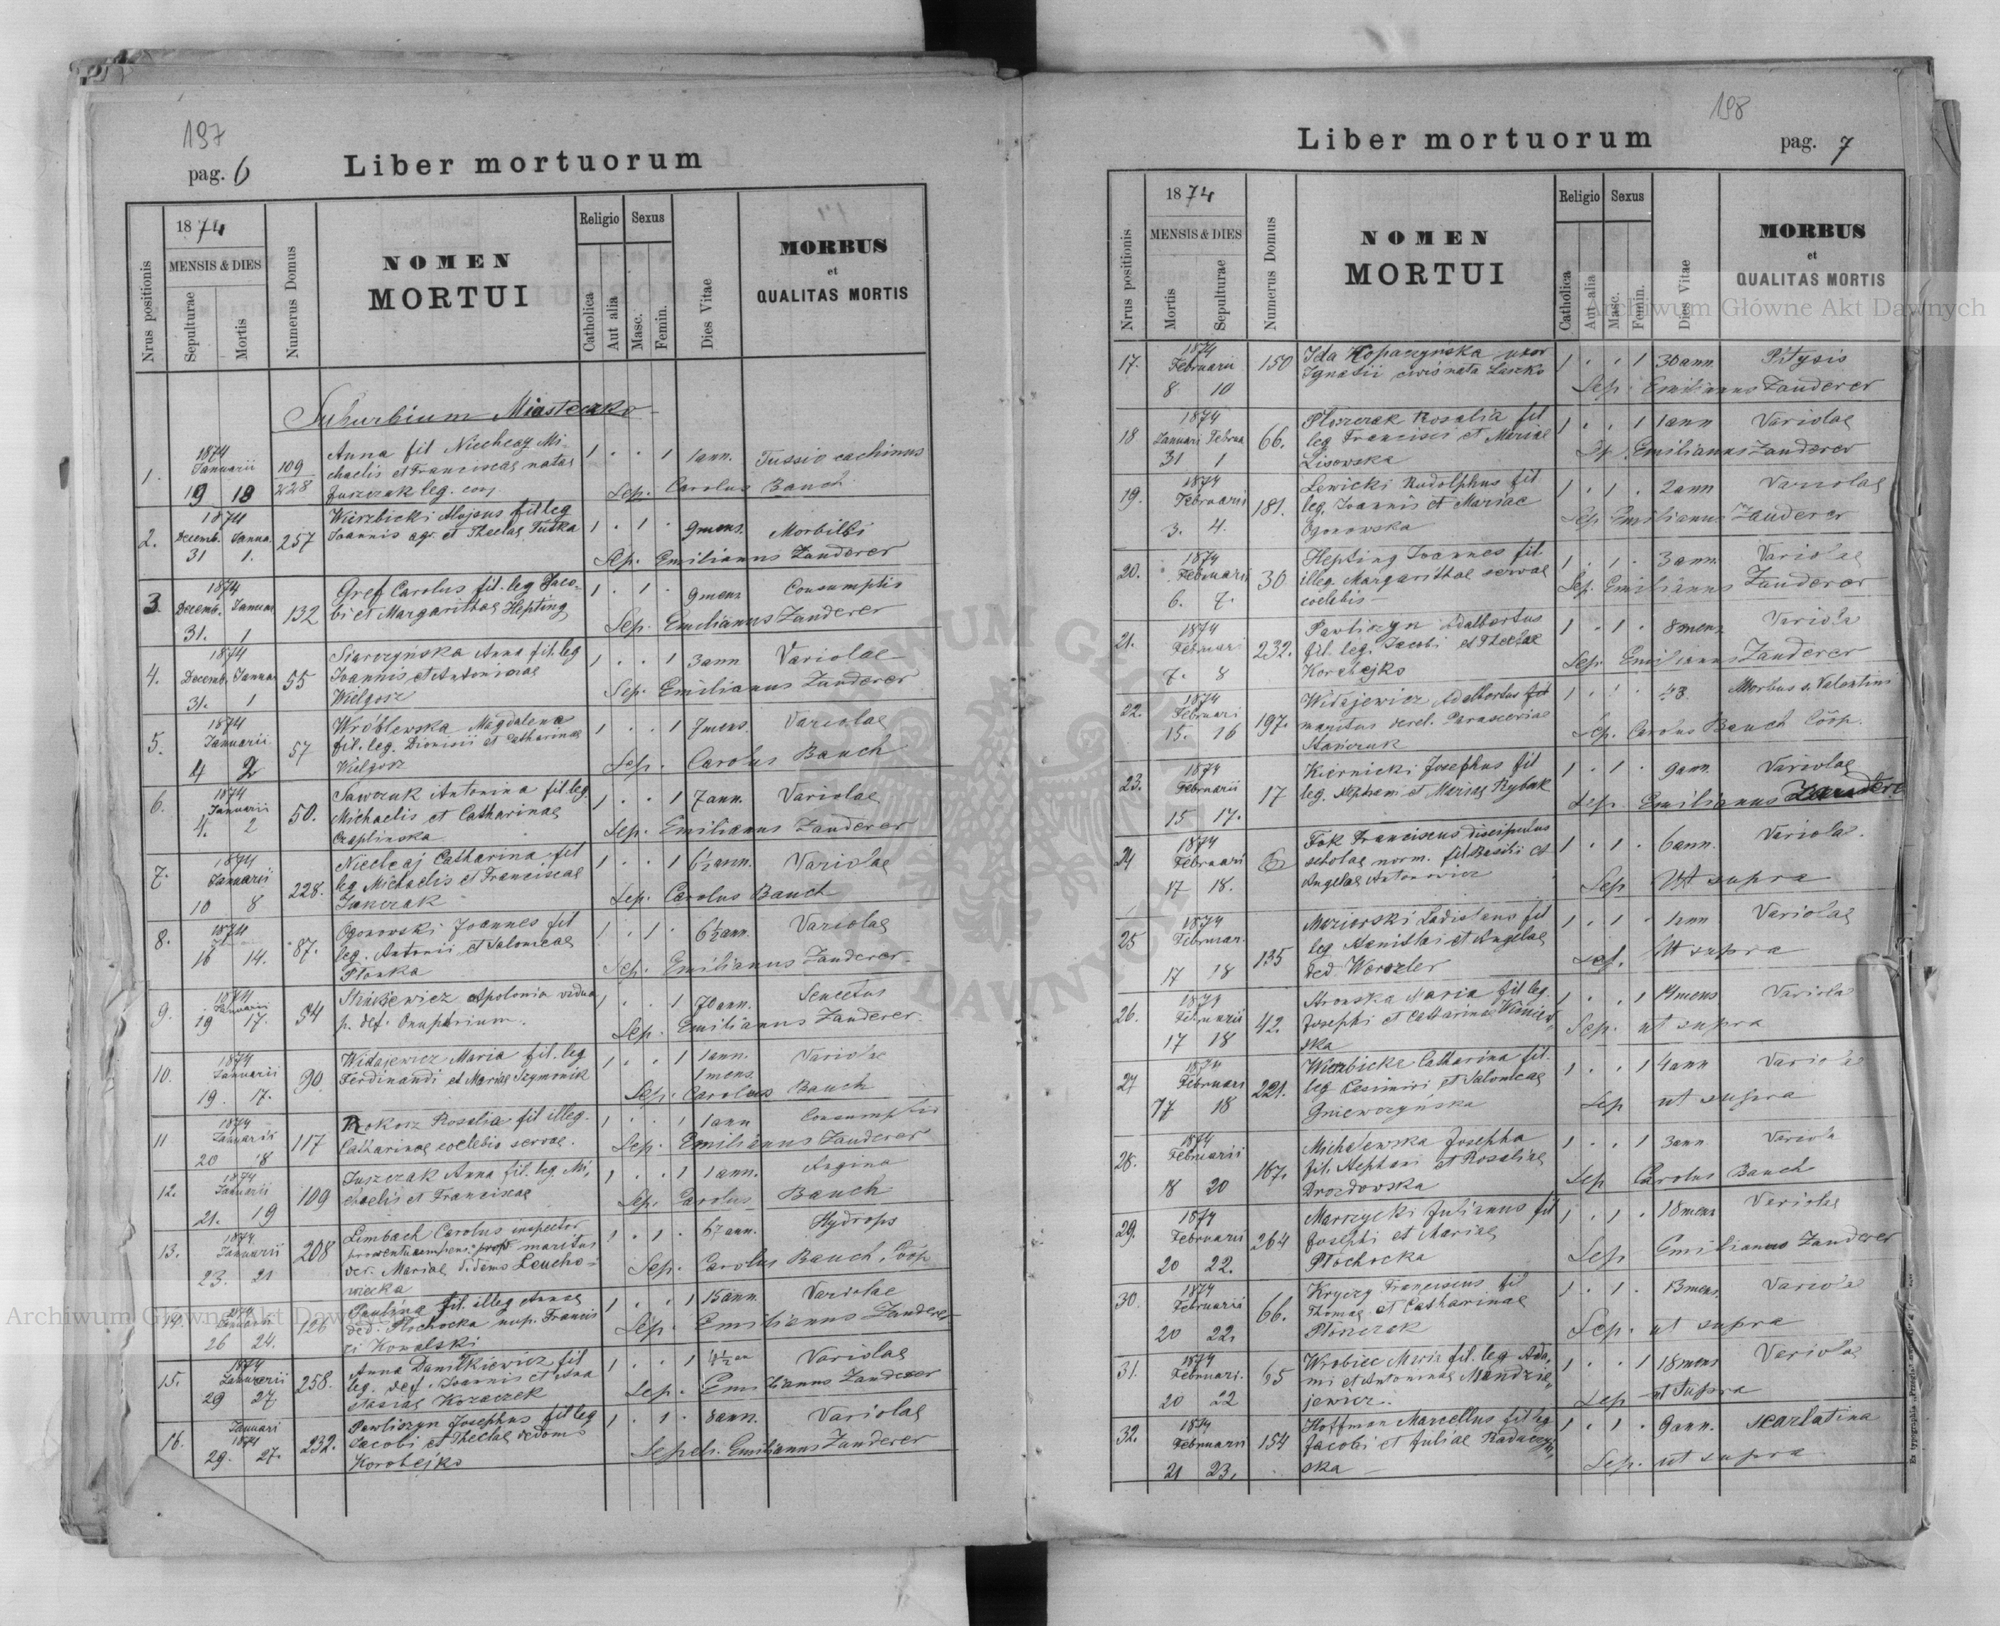 197
pag. 6
Liber mortuorum
Nrus positionis
1874
MENSIS & DIES
Sepulturae
Mortis
Numerus Domus
NOMEN
MORTUI
Religio
Catholica
Aut alia
Sexus
Masc.
Femin.
Dies Vitae
MORBUS
et
QUALITAS MORTIS
Suburbium Miasteczko
1. 1874 Januarii 19 18 109 228 Anna fil Niechcaj Mi-
chaelis et Franciscae natae
Juszczak leg. conj 1 1 1 ann. Tussis
Sep. Carolus Bauch
2. 1874 Decemb. Janua. 31 1. 257 Wierzbicki Alojsus fil leg
Joannis agr. et Theclae Futka 1 1 9 mens. Morbilli
Sep. Emilianus Zanderer
3. 1874 Decemb. Januar 31. 1 132 Gref Carolus fil. leg Jaco-
bi et Margarithae Hepting 1 1 9 mens Consumptis
Sep. Emilianus Zanderer
4. 1874 Decemb. Januar 31. 1 55 Siarczyńska Anna fil. leg
Joannis et Antoninae
Wielgosz 1 1 3 ann Variolae
Sep. Emilianus Zanderer
5. 1874 Januarii 4 2 57 Wroblewska Magdalena
fil. leg. Dionisii et Catharinae
Wielgosz 1 1 7 mens. Variolae
Sep. Carolus Bauch
6. 1874 Januarii 4. 2 50. Sawczuk Antonina fil leg.
Michaelis et Catharinae
Czaplinska 1 1 7 ann. Variolae
Sep. Emilianus Zanderer
7. 1874 Januarii 10 8 228. Niechcaj Catharina fil
leg Michaelis et Franciscae
1 1 6½ ann. Variolae
Sep. Carolus Bauch
8. 1874 16 14. 87. Ogonowski Joannes fil
leg. Antonii et Salomeae
Plonka 1 1 6½ ann. Variolae
Sep. Emilianus Zanderer.
9. 1874 Januarii 19 17. 34 Apolonia vidua
p. def. Onuphrium. 1 1 70 ann. Senectus
Sep. Emilianus Zanderer.
10. 1874 Januarii 19. 17. 90. Widajewicz Maria fil. leg
Ferdinandi et Mariae Szymonik 1 1 1 ann. 1 mens Variolae
Sep. Carolus Bauch
11 1874 Januarii 20 18 117 Rokosz Rosalia fil illeg.
Catharinae coelebis servae. 1 1 1 ann
Sep. Emilianus Zanderer
12. 1874 Januarii 21. 19 109 Juszczak Anna fil. leg. Mi,
chaelis et Franciscae 1 1 1 ann. Angina
Sep. Carolus Bauch
13. 1874 Januarii 23. 21 208 Limbach Carolus inspector
maritus
der. Mariae d. doms Leucho-
wiecka 1 1 67 ann. Hydrops
Sep. Carolus Bauch, Coop
14. 1874 26 24. 126 Paulina fil. illeg Annae
ded. Plichocka nup. Francis
ci Kowalski 1 1 15 ann. Variolae
Sep. Emilianus Zanderer
15. 1874 Januarii 29 27 258. Anna Danilkiewicz fil
leg. def. Joannis et Ana
stasiae Kozaczek 1 1 Variolae
Sep. Emilianus Zanderer
16. Januari 1874 29. 27. 232. Pawliszyn Josephus fil leg
Jacobi et Theclae de doms
Korobejko 1 1 8 ann. Variolae
Sepel. Emilianus Zanderer
198
Liber mortuorum
pag. 7
Nrus positionis
1874
MENSIS & DIES
Mortis
Sepulturae
Numerus Domus
NOMEN
MORTUI
Religio
Catholica
Aut alia
Sexus
Masc.
Femin.
Dies Vitae
MORBUS
et
QUALITAS MORTIS
17. 1874 Februarii 8 10 150 Ida Kopaczyńska uxor
Ignatii civis nata Laszko 1 1 30 ann Pitysis
Sep. Emilianus Zanderer
18 1874 Januari Februa 31 1 66. Ploszczak Rosalia fil
leg Francisci et Mariae
Lisowska 1 1 1 ann Variolae
Sep. Emilianus Zanderer
19. 1874 Februarii 3. 4. 181. Lewicki Rudolphus fil
leg. Joannis et Mariae
Ogonowska 1 1 2 ann Variolae
Sep Emilianus Zanderer
20. 1874 Februarii 6. 7. 30 Hepting Joannes fil.
illeg. Margarithae servae
coelebis 1 1 3 ann. Variolae
Sep. Emilianus Zanderer
21. 1874 Februari 7. 8 232. Pavliszyn Adalbertus
fil. leg. Jacobi et Theclae
Korobejko 1 1 8 mens Variola
Sep. Emilianus Zanderer
22. 1874 Februari 15. 16 197. Widajewicz Adalbertus fil
maritus derel. Parasceviae
Stańczuk 1 1 43. Morbus s. Valentini
Sep. Carolus Bauch Coop.
23. 1874 Februarii 15 17. 17 Kiernicki Josephus fil
leg. Stephani et Mariae Rybak 1 1 9 ann. Variolae
Sep. Emilianus Zanderer
24 1874 Februari 17 18. Fok Franciscus discipulus
scholae norm. fil Basilii et
Angelae Antonowicz 1 1 6 ann. Variola.
Sep Ut supra
25 1874 Februar. 17 18 135 Mazierski Ladislaus fil
leg Stanislai et Angelae
ded. Worszler 1 1 1 ann Variolae
Sep. Ut supra
26. 1874 Februarii 17 18 42. Stronska Maria fil leg.
Josephi et Catharinae Wisniew,
ska 1 1 14 mens Variola
Sep. ut supra
27 1874 Februari 17 18 221. Wierzbicka Catharina fil.
leg Casimiri et Salomeae
Gniewczyńska 1 1 4 ann Variola
Sep ut supra
28. 1874 Februarii 18 20 167. Michalewska Josepha
fil. Stephani et Rosaliae
Drozdowska 1 1 3 ann. Variola
Sep Carolus Bauch
29. 1874 Februarii 20 22. 264 Marszycki Julianus fil
Josephi et Mariae
Plochocka 1 1 18 mens Variolae
Sep Emilianus Zanderer
30. 1874 Februarii 20 22. 66. Kryczy Franciscus fil
Thomae et Catharinae
Ploszczak 1 1 13 mens. Variola
Sep. ut supra
31. 1874 Februari. 20 22 65 Wrobiec Maria fil. leg Ada,
mi et Antoninae Mandzie,
jewicz. 1 1 18 mens Variolae
Sep ut supra
32. 1874 Februarii 21 23, 154 Hoffman Marcellus fil leg
Jacobi et Juliae Radaczyń,
ska 1 1 9 ann. Scarlatina
Sep. ut supra
Archiwum Główne Akt Dawnych
Archiwum Główne Akt Dawnych